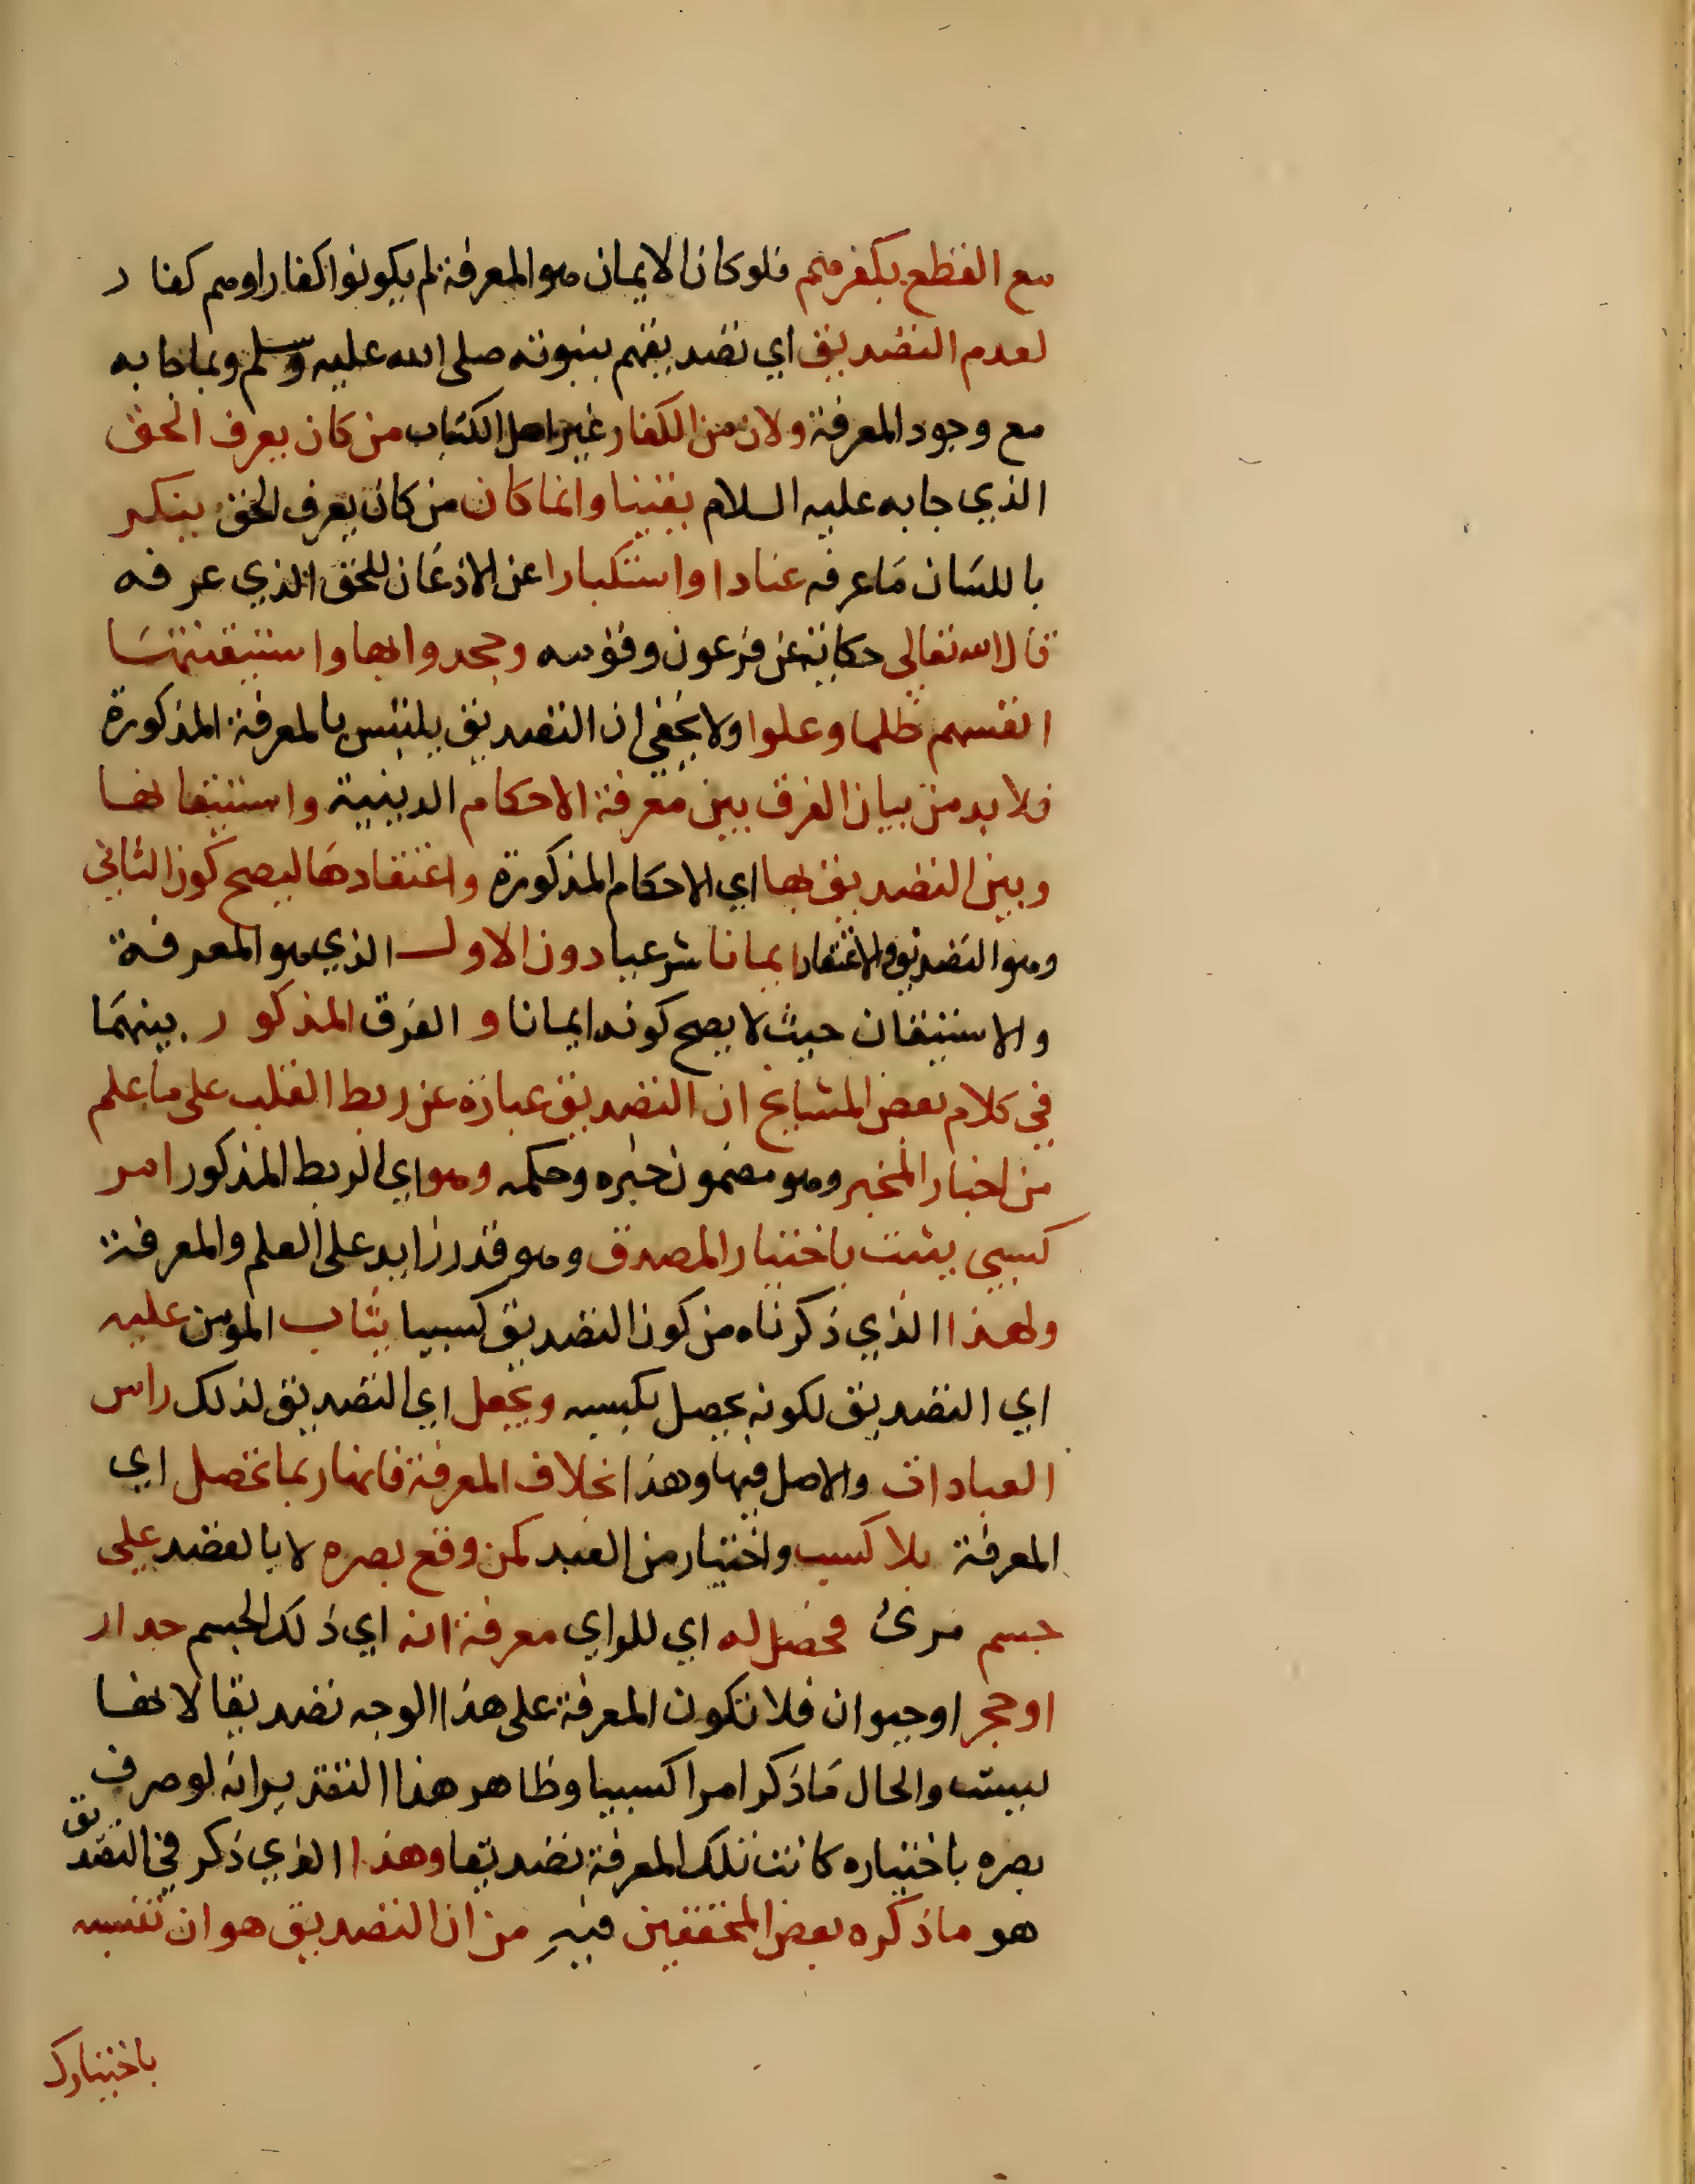 مع القطع بكفرهم فلو كان الايمان هو المعرفة لم يكونوا كفارا وهم كفار
لعدم التصديق اي تصديقهم بنبوته صلى الله عليه وسلم وبما جا به
مع وجود المعرفة ولان من الكفار غير اهل الكتاب من كان يعرف الحق
الذي جا به عليه السلام يقينا وانما كان من كان يعرف الحق ينكر
باللسان ما عرفه عنادا واستكبارا عن الاذعان للحق الذي عرفه
قال الله تعالى حكاية عن فرعون وقومه وجحدوا بها واستيقنتها
انفسهم ظلما وعلوا ولا يخفى ان التصديق يلتبس بالمعرفة المذكورة
فلا بد من بيان الفرق بين معرفة الاحكام الدينية واستيقانها
وبين التصديق بها اي الاحكام المذكورة واعتقادها ليصح كون الثاني
وهو التصديق والاعتقاد ايمانا شرعيا دون الاول الذي هو المعرفة
والاستيقان حيث لا يصح كونه ايمانا و الفرق المذكور بينهما
في كلام بعض المشايخ ان التصديق عبارة عن ربط القلب على ما علم
من اخبار المخبر وهو مضمون خبره وحكمه وهو اي الربط المذكور امر
كسبي يثبت باختيار المصدق وهو قدر زايد على العلم والمعرفة
ولهذا الذي ذكرناه من كون التصديق كسبيا يثاب المومن عليه
اي التصديق لكونه يحصل بكسبه ويجعل اي التصديق لذلك راس
العبادات والاصل فيها وهذا بخلاف المعرفة فانها ربما تحصل اي
المعرفة بلا كسب واختيار من العبد كمن وقع بصره لا بالقصد على
جسم مرئ فحصل له اي للراي معرفة انه اي ذلك الجسم جدار
او حجر او حيوان فلا تكون المعرفة على هذا الوجه تصديقا لانها
ليست والحال ما ذكر امرا كسبيا وظاهر هذا التقدير انه لو صرف
بصره باختياره كانت تلك المعرفة تصديقا وهذا الذي ذكر في التصديق
هو ما ذكره بعض المحققين فيه من ان التصديق هو ان تنسبه
باختيارك